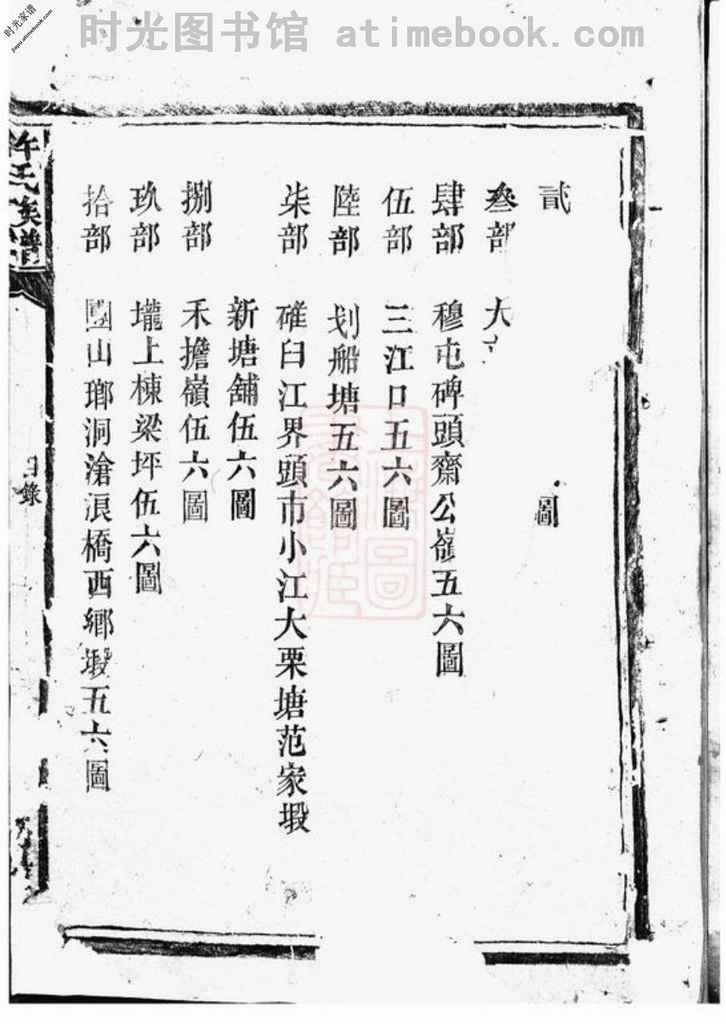 时光图书馆 atimebook.com
时光家谱
www.atimebook.com
貳 圖
叁部 大
肆部 穆屯碑頭齋公嶺五六圖
伍部 三江口五六圖
陸部 划船塘五六圖
柒部 碓臼江界頭市小江大栗塘范家塅
新塘舖伍六圖
捌部 禾擔嶺伍六圖
玖部 壠上棟梁坪伍六圖
拾部 山瑯洞滄浪橋西鄉塅五六圖
許氏族譜
目錄